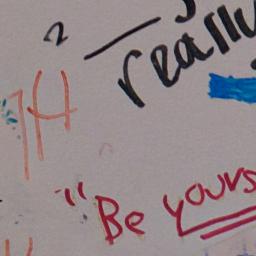 2
really
H
"Be yours